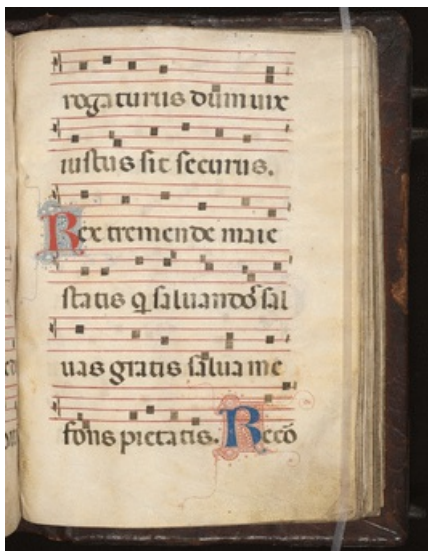 rogaturus dum uix
iustus sit securus.
Rex tremende maie
statis q̄ saluando sal
uas gratis salua me
fons pietatis. Recō